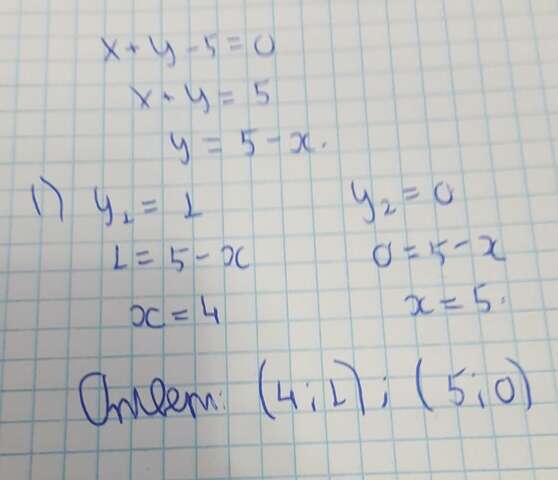 x + y - 5 = 0
x + y = 5
y = 5 - x.
1) y₁ = 1 y₂ = 0
1 = 5 - x 0 = 5 - x
x = 4 x = 5.
Ответ: (4; 1); (5; 0)